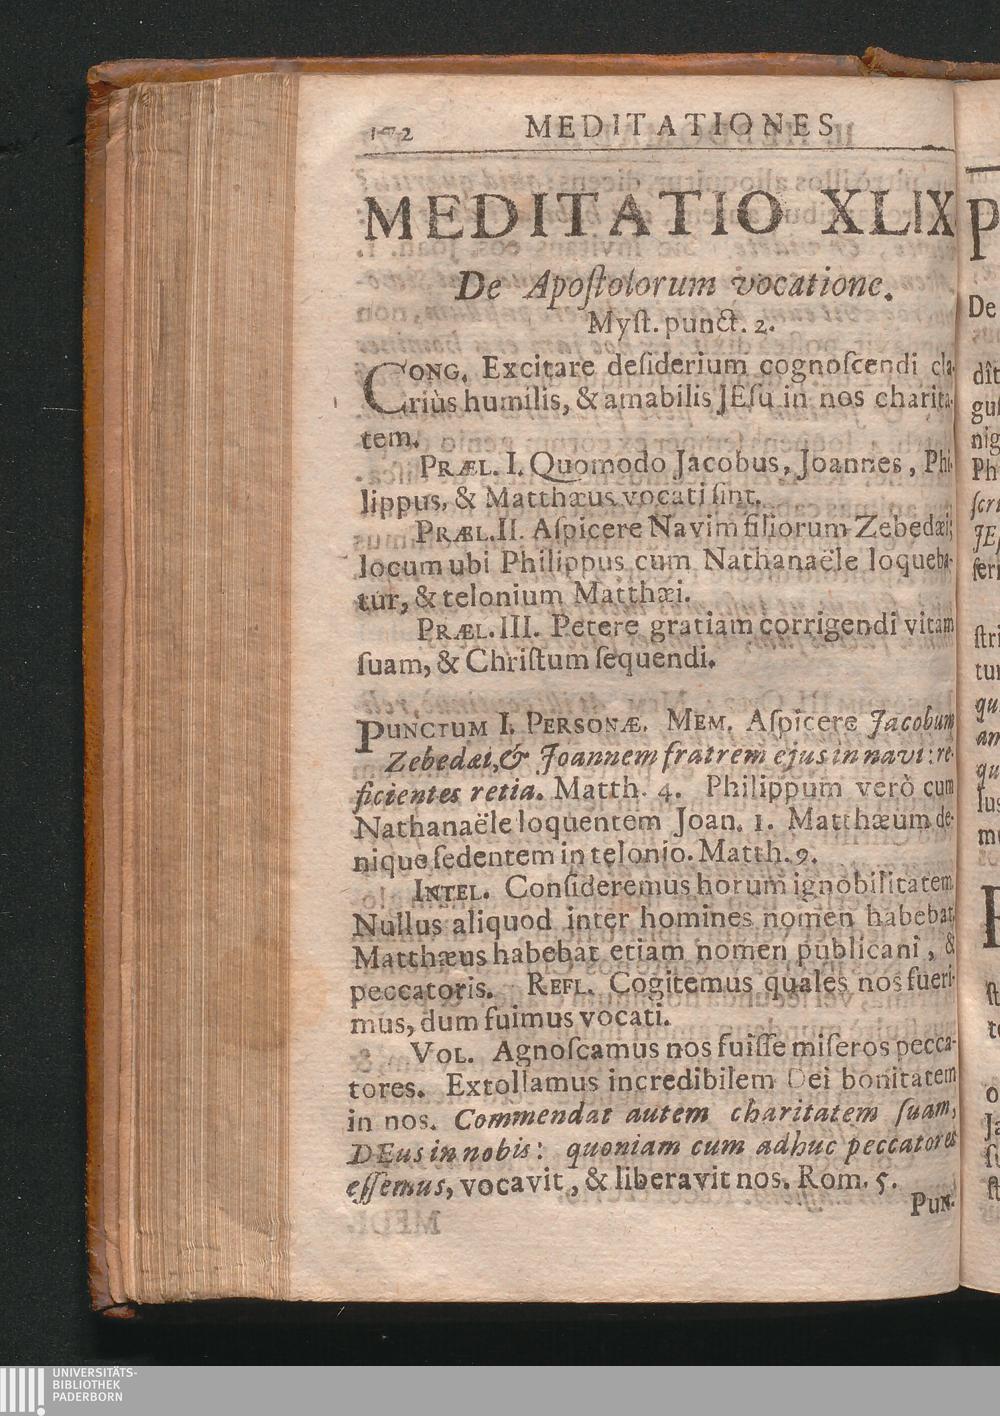 172 MEDITATIONES
MEDITATIO XLIX
De Apoſtolorum vocatione.
Myſt. punct. 2.
CONG. Excitare deſiderium cognoſcendi cla-
riùs humilis, & amabilis JEſu in nos charita-
tem.
PRÆL. I. Quomodo Jacobus, Joannes, Phi-
lippus, & Matthæus vocati ſint.
PRÆL. II. Aſpicere Navim filiorum Zebedæi;
locum ubi Philippus cum Nathanaële loqueba-
tur, & telonium Matthæi.
PRÆL. III. Petere gratiam corrigendi vitam
ſuam, & Chriſtum ſequendi.
PUNCTUM I. PERSONÆ. MEM. Aſpicere Jacobum
Zebedæi, & Joannem fratrem ejus in navi: re-
ficientes retia. Matth. 4. Philippum verò cum
Nathanaële loquentem Joan. 1. Matthæum de-
nique ſedentem in telonio. Matth. 9.
INTEL. Conſideremus horum ignobilitatem.
Nullus aliquod inter homines nomen habebat.
Matthæus habebat etiam nomen publicani, &
peccatoris. REFL. Cogitemus quales nos fueri-
mus, dum fuimus vocati.
VOL. Agnoſcamus nos fuiſſe miſeros pecca-
tores. Extollamus incredibilem Dei bonitatem
in nos. Commendat autem charitatem ſuam,
DEus in nobis: quoniam cum adhuc peccatores
eſſemus, vocavit, & liberavit nos. Rom. 5.
PUN-
UNIVERSITÄTS-
BIBLIOTHEK
PADERBORN